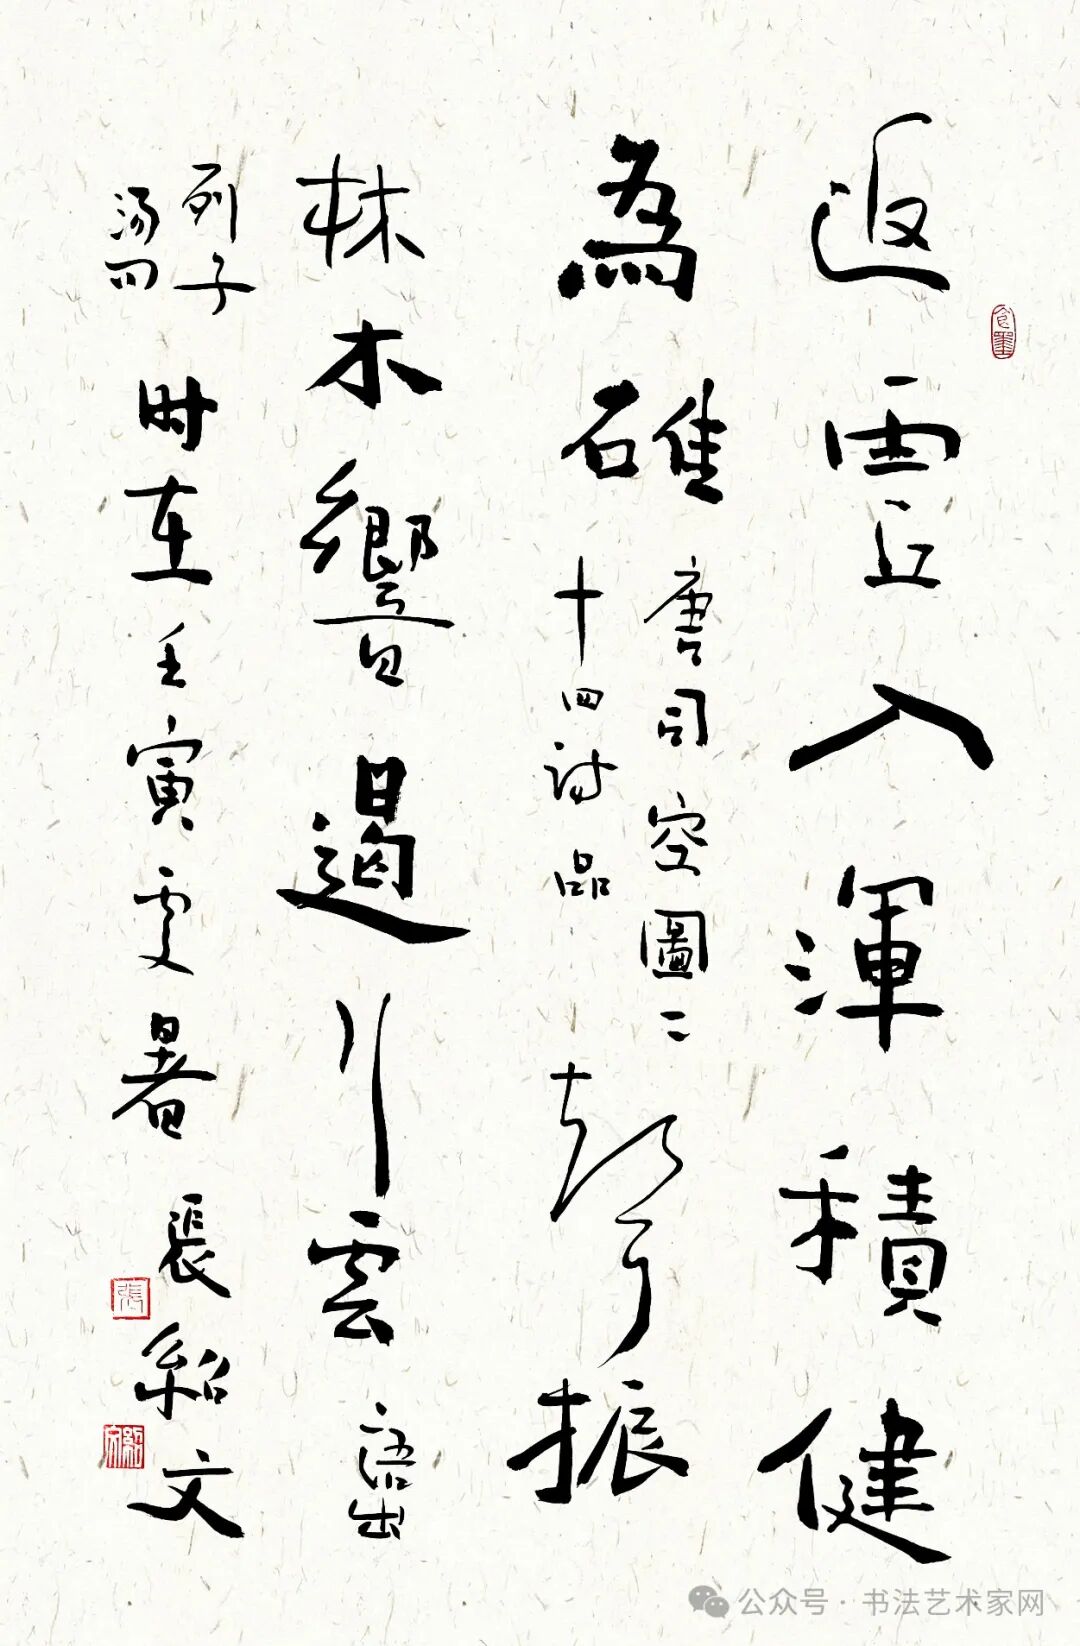 返虛入渾積健
為雄
唐司空圖二
十四詩品
聲振
林木響遏行雲
語出
列子
湯問
时在壬寅處暑
張紹文
張
公众号·书法艺术家网